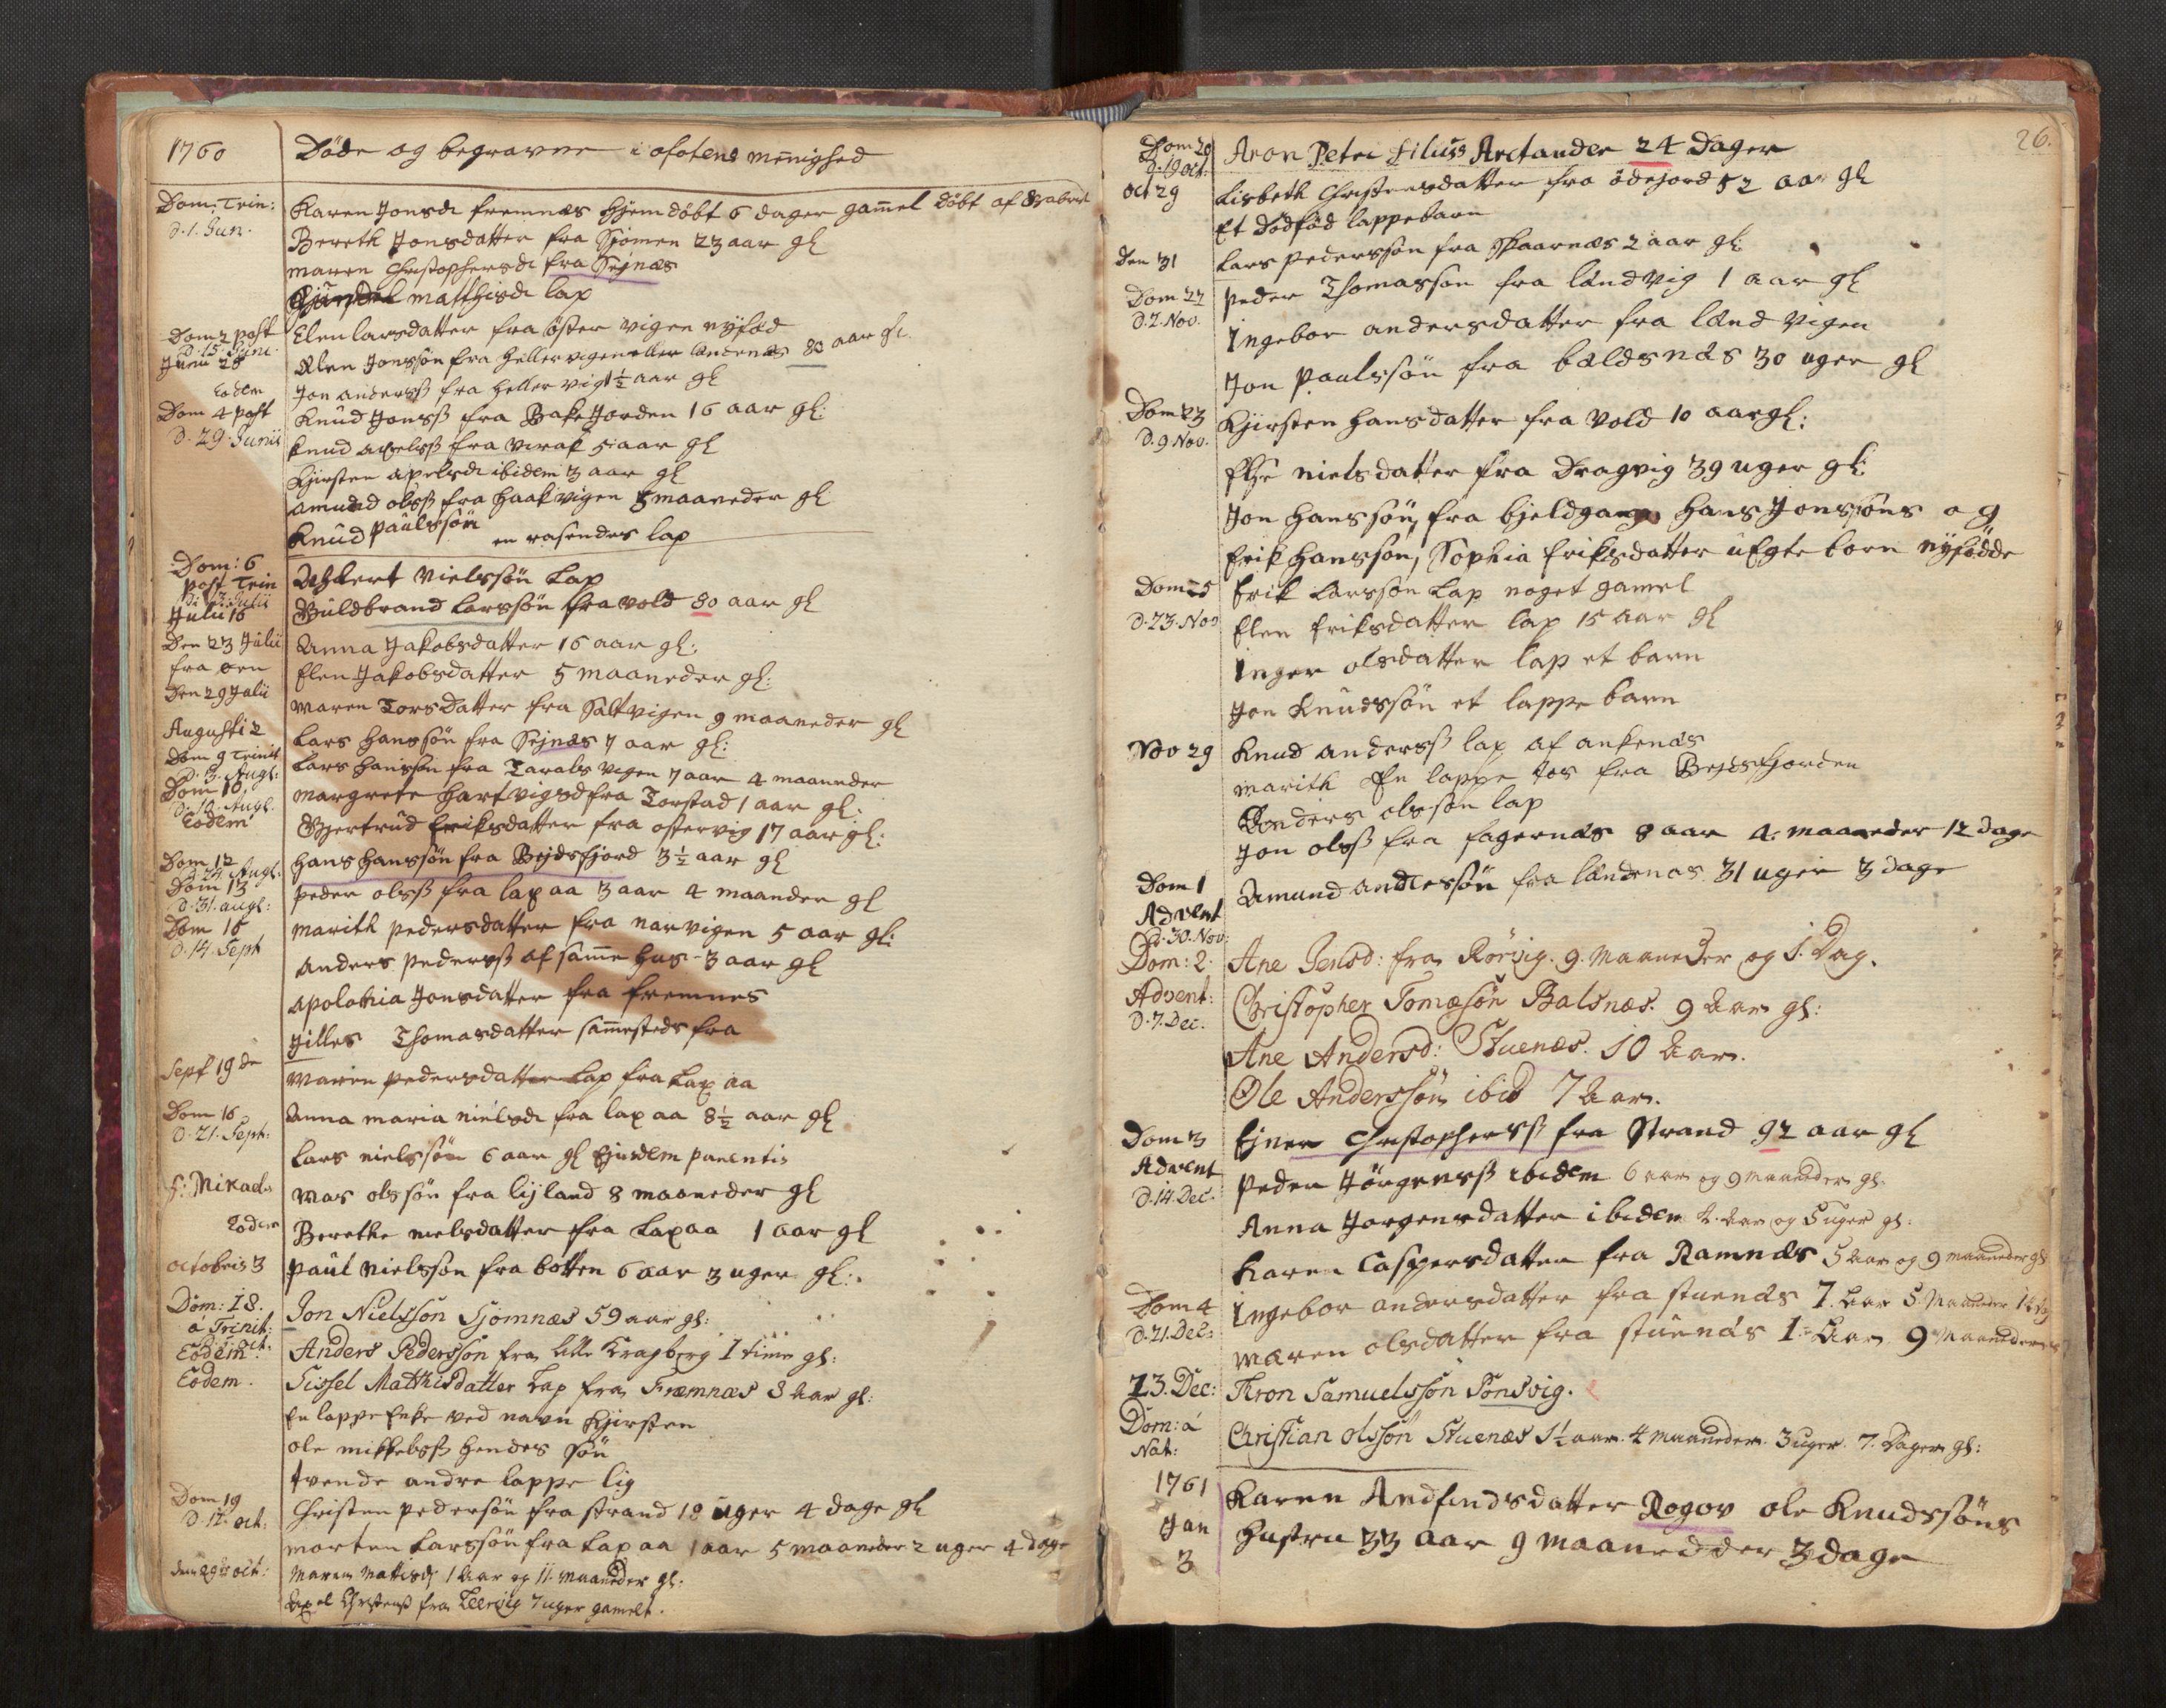 1760 Döde og begravne i ofotens menighed
Dom: Trin: Karen Jonsdr fremnæs hjemdöbt 6 dager gamel döbt af
D. 1. Jun. Bereth Jonsdatter fra Sjomen 23 aar gl
maren Christophersdr fra Sejnæs
matthisdr lap
Dom 2 post Elen larsdatter fra öster vigen nyfæd
D. 15 Juni
Junii 28 Jonssön fra hellervigen eller lændenæs 80 aar gl.
Eodem Jon anderss fra hellervig 1½ aar gl
Dom 4 post Knud Jonss fra Bakejorden 16 aar gl:
D. 29. Junii knud axelss fra virak 5 aar gl
Kjirsten axelsdr ibidem 3 aar gl
amund olss fra haakvigen 8 maaneder gl
Knud paulssön en rasendes lap
Dom: 6 post Trin Nielssön Lap
D. 13. Julii
Julii 16 Guldbrand larssön fra vold 80 aar gl
Den 23 Julii Anna Jakobsdatter 16 aar gl:
fra öen Elen Jakobsdatter 5 maaneder gl:
Den 29 Julii maren Torsdatter fra Saltvigen 9 maaneder gl
Augusti 2 Lars hanssön fra Sejnæs 7 aar gl:
Dom 9 Trinit Lars hanssön fra Taralsvigen 7 aar 4 maaneder
D. 3. Augl:
Dom 10 margrete hartvigsd fra Torstad 1 aar gl:
D. 10. Augl.
Eodem Gjertrud Eriksdatter fra ostervig 17 aar gl:
Dom 12 hans hanssön fra Bejdsfjord 3½ aar gl
D. 24 Augl:
Dom 13 peder olss fra laxaa 3 aar 4 maander gl
D. 31. augl:
Dom 15 marith pedersdatter fra narvigen 5 aar gl:
D. 14. Sept anders pederss af samme hus - 3 aar gl
apolonia Jonsdatter fra fremnes
Jilles Thomasdatter sammesteds fra
Sept 19de maren pedersdatter lap fra Laxaa
Dom 16 Anna maria nielsdr fra laxaa 8½ aar gl
D. 21. Sept: Lars nielssön 6 aar gl Ejusdem parentis
f: Mikaelis mas olssön fra lijland 8 maaneder gl
Eodem Berethe nielsdatter fra Laxaa 1 aar gl
octobris 3 paul nielssön fra botten 6 aar 3 uger gl:
Dom: 18. Jon Nielssön Sjomnæs 59 aar gl:
á Trinit:
Eodem Anders Pederssön fra lille Kragberg 1 time gl:
Eodem. Sissel Matthisdatter Lap fra Fræmnæs 8 aar gl:
En lappe Enke ved navn Kjirsten
ole mikkelss hendes sön
tvende andre lappe lig
Dom 19 Christen pederssön fra strand 18 uger 4 dage gl
D. 12. oct: morten Larssön fra Laxaa 1 aar 5 maaneder 2 uger 4 dage
oct: Maren Mattisd: 1 aar og 11. maaneder gl.
Axel Christenss fra Leervig 7 uger gamelt.
26.
Dom 20 Aron Petri filius Arctander 24 Dager
D. 19 oct:
oct 29 Lisbeth Christensdatter fra ödejord 52 aar gl
Et dödfød lappebarn
Den 31 Lars pederssön fra Skaarnæs 2 aar gl:
Dom 22 peder Thomassön fra lændvig 1 aar gl
D. 2. Nov. Ingebor andersdatter fra lændvigen
Jon paulssön fra balsnæs 30 uger gl
Dom 23 Kjirsten hansdatter fra vold 10 aar gl:
D. 9 Nov. Else nielsdatter fra Dragvig 39 uger gl:
Jon hanssön, fra bjeldgam, hans Jonssöns og
Erik hanssön, Sophia Eriksdatter uEgte born nyfödde
Dom 25 Erik Larssön Lap noget gamel
D. 23. Nov Elen Eriksdatter lap 15 aar gl
Inger olsdatter lap et barn
Jon Knudssön et lappe barn
Nov 29 Knud anderss lap af ankenæs
marith En lappe tøs fra Bejdsfjorden
Anders olssön lap
Jon olss fra fagernæs 8 aar 4 maaneder 12 dage
Dom 1 Amund anderssön fra lændnæs 31 uger 3 dage
Advent
D. 30. Nov:
Dom: 2. Ane Jensd: fra Rörvig. 9. Maaneder og 1. Dag.
Advent: Christopher Tomæsön Balsnæs. 9 Aar gl:
D. 7. Dec. Ane Andersd: Stuenæs. 10 Aar.
Ole Anderssön ibid 7 Aar.
Dom 3 Ejner Christopherss fra Strand 92 aar gl
Advent peder Jörgenss ibidem 6 aar og 9 maaneder gl.
D. 14. Dec. Anna Jorgensdatter ibidem 2. Aar og 5 uger gl:
Karen Caspersdatter fra Ramnæs 5 Aar og 9 maaneder gl
Dom 4 Ingebor andersdatter fra stuenæs 7. Aar 5. Maaneder
D. 21. Dec: maren olsdatter fra stuenæs 1 Aar 9 Maaneder
23. Dec: Aron Samuelssön Sönsvig.
Dom: á Christian olssön Stuenæs 1½ aar. 4 maaneder. 3 uger. 7. Dager gl:
Nat:
1761 Karen Andfindsdatter Rogov ole Knudssöns
Jan hustru 33 aar 9 maanedder 3 dage
3